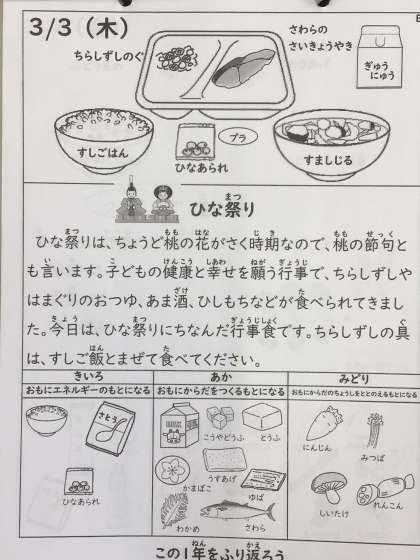 3/3（木）
さわらの
さいきょうやき
ちらしずしのぐ
ぎゅう
にゅう
すしごはん
プラ
すましじる
ひなあられ
ひな祭り
ひな祭りは、ちょうど桃の花がさく時期なので、桃の節句と
も言います。子どもの健康と幸せを願う行事で、ちらしずしや
はまぐりのおつゆ、あま酒、ひしもちなどが食べられてきまし
た。今日は、ひな祭りにちなんだ行事食です。ちらしずしの具
は、すしご飯とまぜて食べてください。
きいろ
おもにエネルギーのもとになる
さとう
ひなあられ
あか
おもにからだをつくるもとになる
こうやどうふ
とうふ
うすあげ
かまぼこ
ゆば
わかめ
さわら
みどり
おもにからだのちょうしをととのえるもとになる
にんじん
みつば
しいたけ
れんこん
この1年をふり返ろう